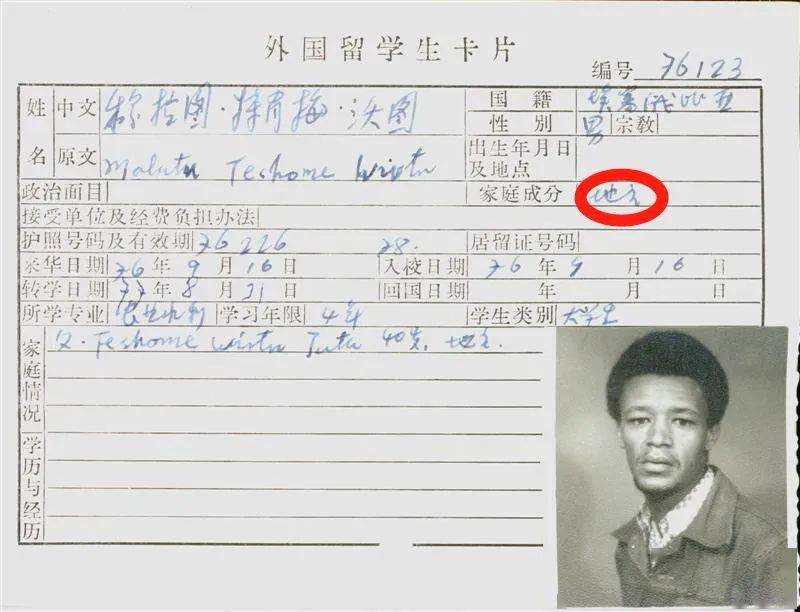 外国留学生卡片
编号 76123
姓名 中文 穆拉图·特肖梅·沃图 国籍 埃塞俄比亚
性别 男 宗教
原文 Mulatu Teshome Wirtu 出生年月日及地点
政治面目 家庭成分 地主
接受单位及经费负担办法
护照号码及有效期 76226 78. 居留证号码
来华日期 76年9月16日 入校日期 76年9月16日
转学日期 77年8月31日 回国日期 年 月 日
所学专业 学习年限 4年 学生类别 大学生
家庭情况 父·Teshome Wirtu Juta 40岁,地主.
学历与经历